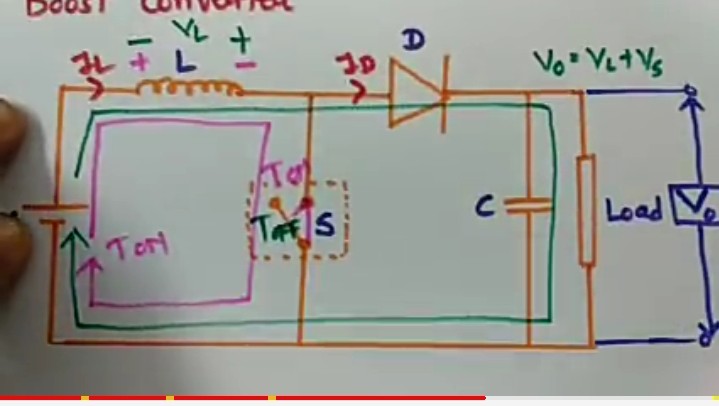 Boost Converter
- VL +
IL + L -
ID
D
Vo = VL + VS
TON
TOFF S
TON
C
Load
Vo